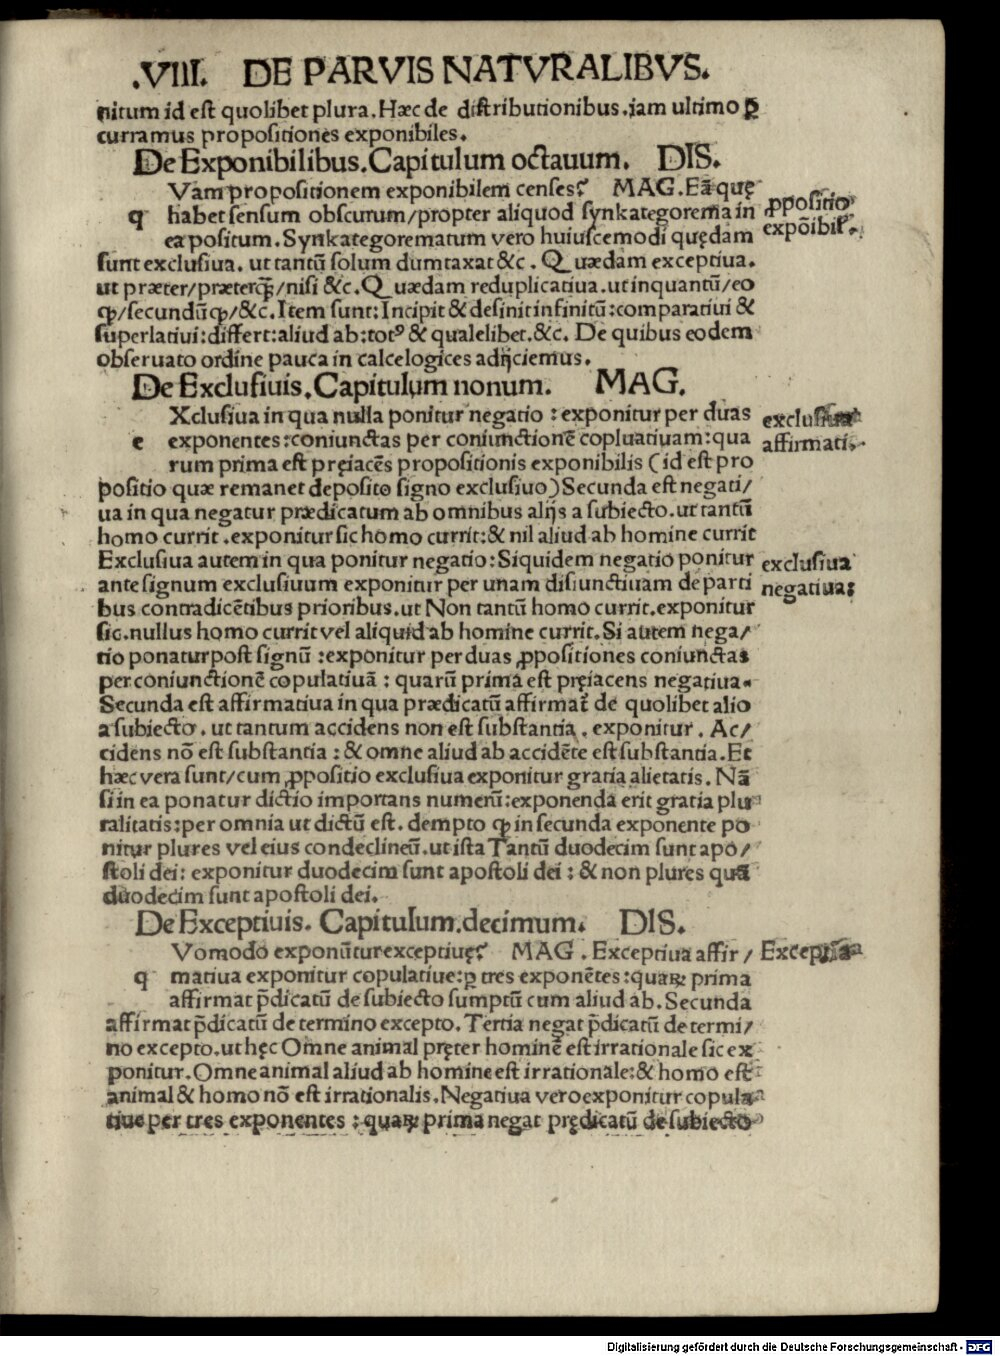 .VIII. DE PARVIS NATVRALIBVS.
nitum id est quolibet plura. Hæc de distributionibus. iam ultimo ꝑ
curramus propositiones exponibiles.
De Exponibilibus. Capitulum octauum. DIS.
Vam propositionem exponibilem censes? MAG. Eā quę
q habet sensum obscurum/propter aliquod synkategorema in
ea positum. Synkategorematum vero huiuscemodi quędam
ꝓpositio
expōibil̓.
sunt exclusiua. ut tantū solum dumtaxat &c. Quædam exceptiua.
ut præter/præterꝗ̄/nisi &c. Quædam reduplicatiua. ut inquantū/eo
ꝙ/secundūꝙ/&c. Item sunt: Incipit & desinit infinitū: comparatiui &
superlatiui: differt: aliud ab: totꝰ & qualelibet. &c. De quibus eodem
obseruato ordine pauca in calcelogices adijciemus.
De Exclusiuis. Capitulum nonum. MAG.
Xclusiua in qua nulla ponitur negatio: exponitur per duas
e exponentes: coniunctas per coniunctionē copluatiuam: qua
rum prima est pręiacēs propositionis exponibilis (id est pro
exclusiua
affirmati.
positio quæ remanet deposito signo exclusiuo) Secunda est negati/
ua in qua negatur prædicatum ab omnibus alijs a subiecto. ut tantū
homo currit. exponitur sic homo currit: & nil aliud ab homine currit
Exclusiua autem in qua ponitur negatio: Siquidem negatio ponitur
ante signum exclusiuum exponitur per unam disiunctiuam de parti
exclusiua
negatiua:
bus contradicētibus prioribus. ut Non tantū homo currit. exponitur
sic. nullus homo currit vel aliquid ab homine currit. Si autem nega/
tio ponatur post signū: exponitur per duas ꝓpositiones coniunctas
per coniunctionē copulatiuā: quarū prima est pręiacens negatiua.
Secunda est affirmatiua in qua prædicatū affirmat̄ de quolibet alio
a subiecto. ut tantum accidens non est substantia. exponitur. Ac/
cidens nō est substantia: & omne aliud ab accidēte est substantia. Et
hæc vera sunt/cum ꝓpositio exclusiua exponitur gratia alietatis. Nā
si in ea ponatur dictio importans numerū: exponenda erit gratia plu
ralitatis: per omnia ut dictū est. dempto ꝙ in secunda exponente po
nitur plures vel eius condeclineū. ut ista Tantū duodecim sunt apo/
stoli dei: exponitur duodecim sunt apostoli dei: & non plures quā
duodecim sunt apostoli dei.
De Exceptiuis. Capitulum. decimum. DIS.
Vomodo exponūtur exceptiuę? MAG. Exceptiua affir/
Exceptiua
q matiua exponitur copulatiue: ꝑ tres exponētes: quaꝝ prima
affirmat p̄dicatū de subiecto sumptū cum aliud ab. Secunda
affirmat p̄dicatū de termino excepto. Tertia negat p̄dicatū de termi/
no excepto. ut hęc Omne animal pręter hominē est irrationale sic ex
ponitur. Omne animal aliud ab homine est irrationale: & homo est
animal & homo nō est irrationalis. Negatiua vero exponitur copula
tiue per tres exponentes: quaꝝ prima negat prędicatū de subiecto
Digitalisierung gefördert durch die Deutsche Forschungsgemeinschaft - DFG